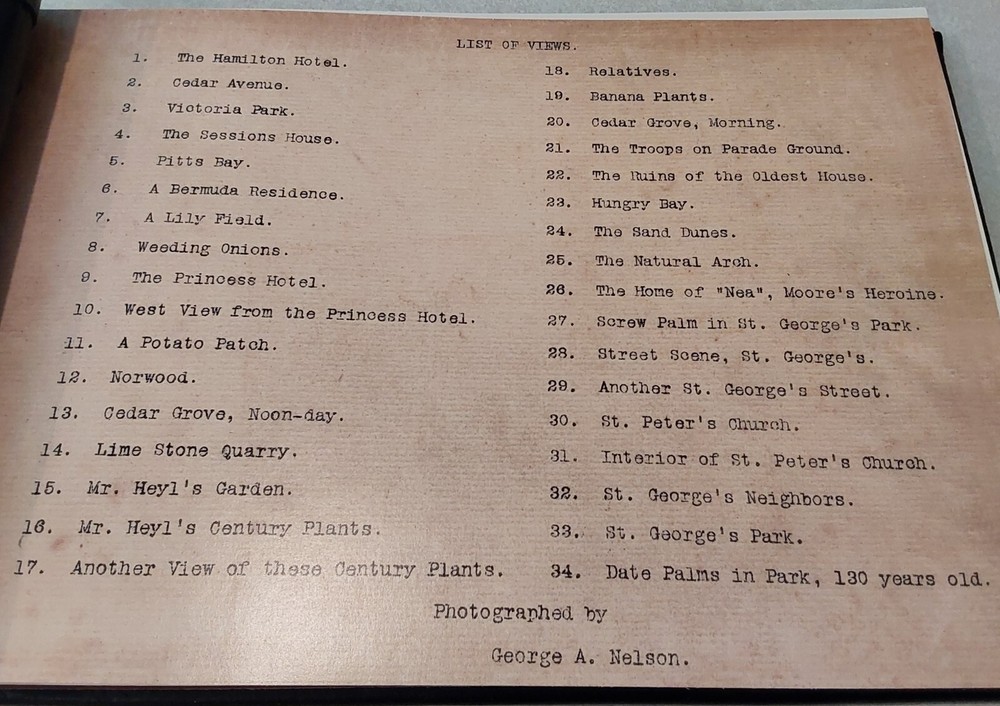 LIST OF VIEWS.
1. The Hamilton Hotel.
2. Cedar Avenue.
3. Victoria Park.
4. The Sessions House.
5. Pitts Bay.
6. A Bermuda Residence.
7. A Lily Field.
8. Weeding Onions.
9. The Princess Hotel.
10. West View from the Princess Hotel.
11. A Potato Patch.
12. Norwood.
13. Cedar Grove, Noon-day.
14. Lime Stone Quarry.
15. Mr. Heyl's Garden.
16. Mr. Heyl's Century Plants.
17. Another View of these Century Plants.
18. Relatives.
19. Banana Plants.
20. Cedar Grove, Morning.
21. The Troops on Parade Ground.
22. The Ruins of the Oldest House.
23. Hungry Bay.
24. The Sand Dunes.
25. The Natural Arch.
26. The Home of "Nea", Moore's Heroine.
27. Screw Palm in St. George's Park.
28. Street Scene, St. George's.
29. Another St. George's Street.
30. St. Peter's Church.
31. Interior of St. Peter's Church.
32. St. George's Neighbors.
33. St. George's Park.
34. Date Palms in Park, 130 years old.
Photographed by
George A. Nelson.